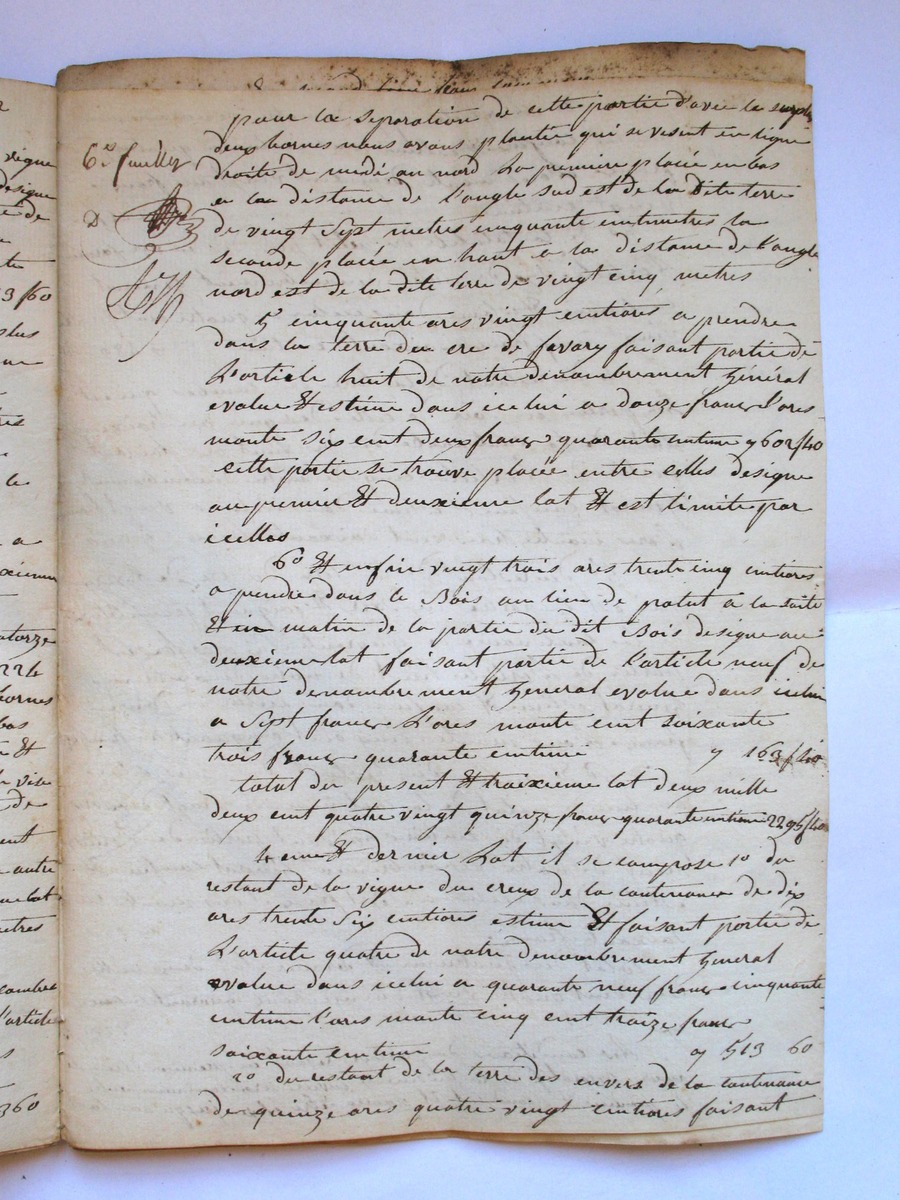 pour la separation de cette partie d'avec le surplus
deux bornes nous avons plantée qui se visent en ligne
droite de midi au nord La premiere placée en bas
a la distance de l'angle sud est de la Dite terre
de vingt Sept metres cinquante centimetres la
seconde placée en haut a la distance de l'angle
nord est de la dite terre de vingt cinq metres
5° cinquante ares vingt centiares a prendre
dans la terre du cre de favary faisant partie de
L'article huit de notre denombrement général
evalué Et estimé dans icelui a douze francs l'ares
monte six cent deux francs quarante centime y 602f40
cette partie se trouve placée entre celles designe
au premier Et deuxieme lot Et est limite par
icelles
6° Et enfin vingt trois ares trente cinq centiares
a prendre dans le Bois au lieu de patut a la suite
Et en matin de la partie du dit Bois designe au
deuxieme lot faisant partie de l'article neuf de
notre denombrement General evalue dans icelui
a Sept francs L'ares monte cent soixante
trois francs quarante centime y 163f40
total du present Et troixieme lot deux mille
deux cent quatre vingt quinze francs quarante centime 2295f40
4eme Et dernier Lot il se compose 1° du
restant de la vigne du creux de la contenance de dix
ares trente Six centiares estimé Et faisant partie de
L'article quatre de notre denombrement General
evalue dans icelui a quarante neuf francs cinquante
centime l'ares monte cinq cent traize francs
soixante centime y 513 60
2° du restant de la terre des envers de la contenance
de quinze ares quatre vingt centiares faisant
6e feuillet
3f60
plus
de
le
a
224
bornes
bas
Et
de
autre
l'article
360